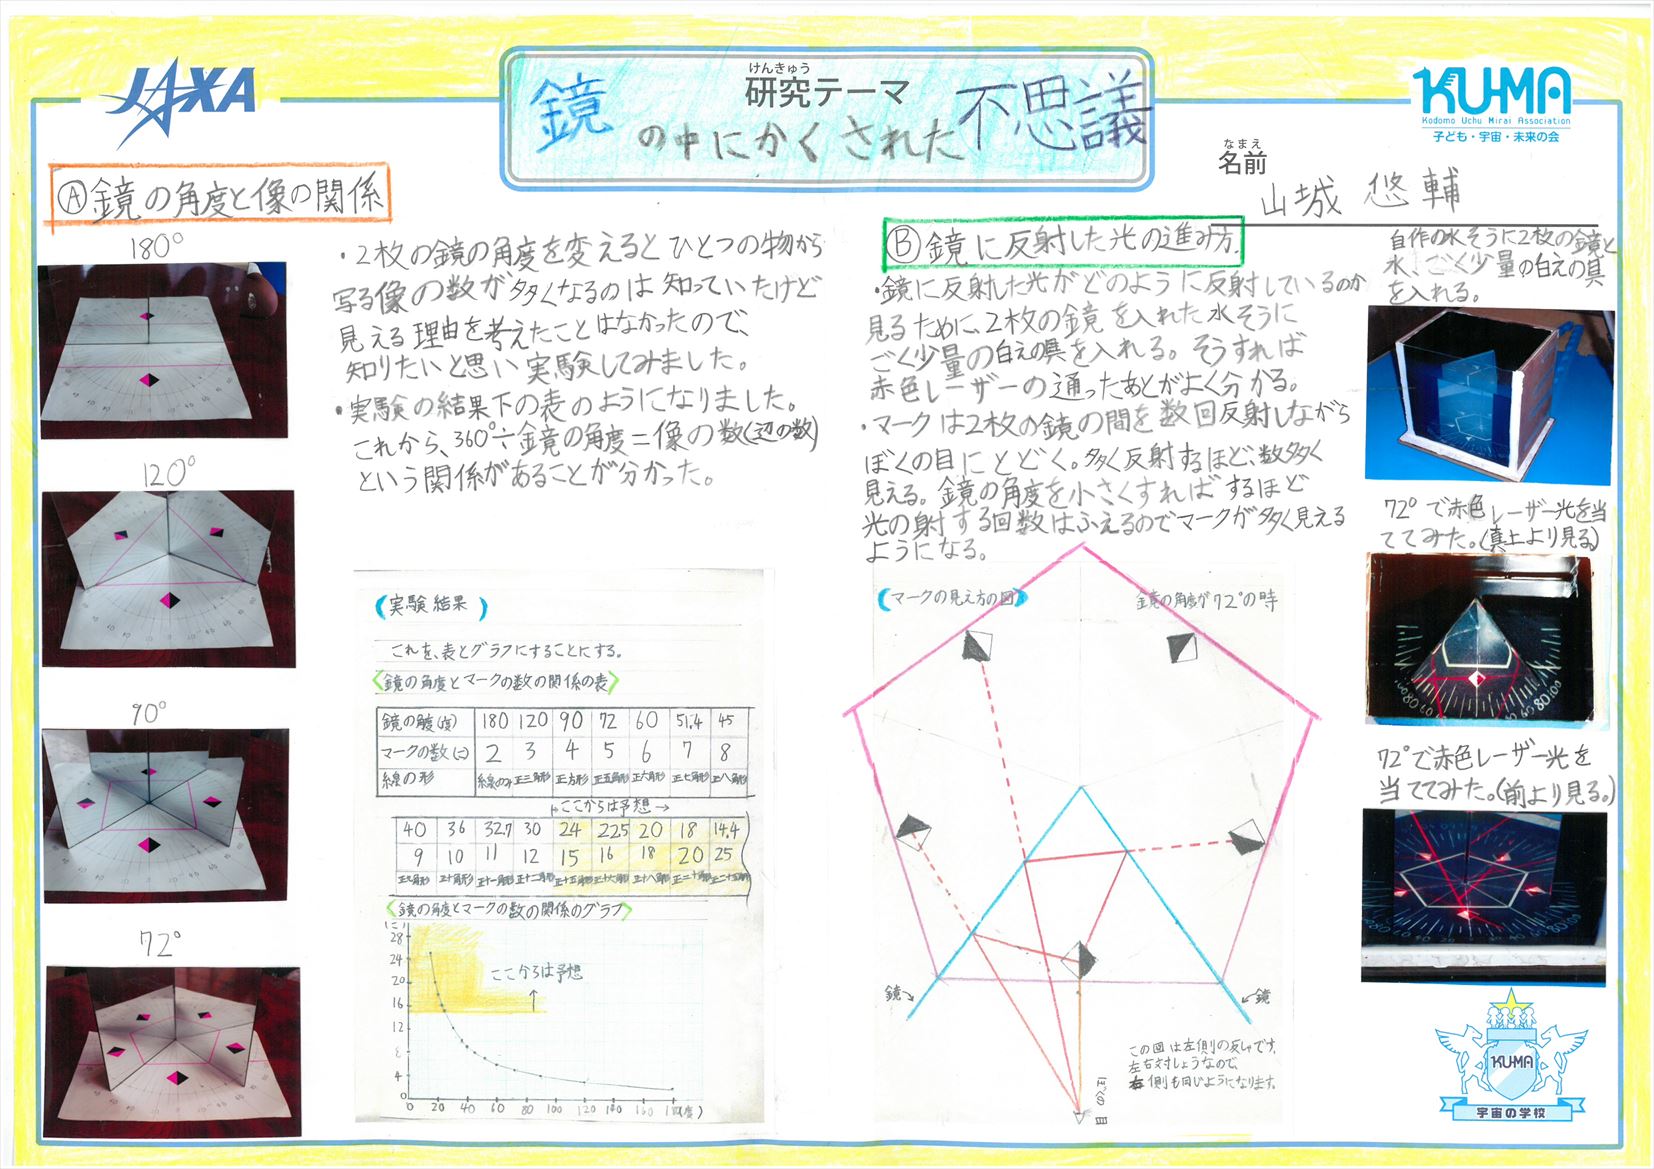 JAXA
けんきゅう
研究テーマ
鏡の中にかくされた不思議
KU-MA
Kodomo Uchu Mirai Association
子ども・宇宙・未来の会
なまえ
名前
山城 悠輔
Ⓐ鏡の角度と像の関係
180°
120°
90°
72°
・2枚の鏡の角度を変えるとひとつの物から
写る像の数が多くなるのは知っていたけど
見える理由を考えたことはなかったので、
知りたいと思い実験してみました。
・実験の結果下の表のようになりました。
これから、360°÷鏡の角度=像の数(辺の数)
という関係があることが分かった。
(実験結果)
これを、表とグラフにすることにする。
〈鏡の角度とマークの数の関係の表〉
鏡の角度(度) 180 120 90 72 60 51.4 45
マークの数(こ) 2 3 4 5 6 7 8
線の形 線のみ 正三角形 正方形 正五角形 正六角形 正七角形 正八角形
ここからは予想→
40 36 32.7 30 24 22.5 20 18 14.4
9 10 11 12 15 16 18 20 25
正九角形 正十角形 正十一角形 正十二角形 正十五角形 正十六角形 正十八角形 正二十角形 正二十五角形
〈鏡の角度とマークの数の関係のグラフ〉
(こ)
28
24
20
16
12
8
4
0
ここからは予想
0 20 40 60 80 100 120 140 160 180(度)
Ⓑ鏡に反射した光の進み方
・鏡に反射した光がどのように反射しているのか
見るために、2枚の鏡を入れた水そうに
ごく少量の白えの具を入れる。そうすれば
赤色レーザーの通ったあとがよく分かる。
・マークは2枚の鏡の間を数回反射しながら
ぼくの目にとどく。多く反射するほど、数多く
見える。鏡の角度を小さくすればするほど
光の射する回数はふえるのでマークが多く見える
ようになる。
(マークの見え方の図)
鏡の角度が72°の時
鏡
鏡
ぼくの目
この図は左側の反しゃです。
左右対しょうなので、
右側も同じようになります。
自作の水そうに2枚の鏡と
水、ごく少量の白えの具
を入れる。
72°で赤色レーザー光を当
ててみた。(真上より見る)
72°で赤色レーザー光を
当ててみた。(前より見る。)
KU-MA
宇宙の学校